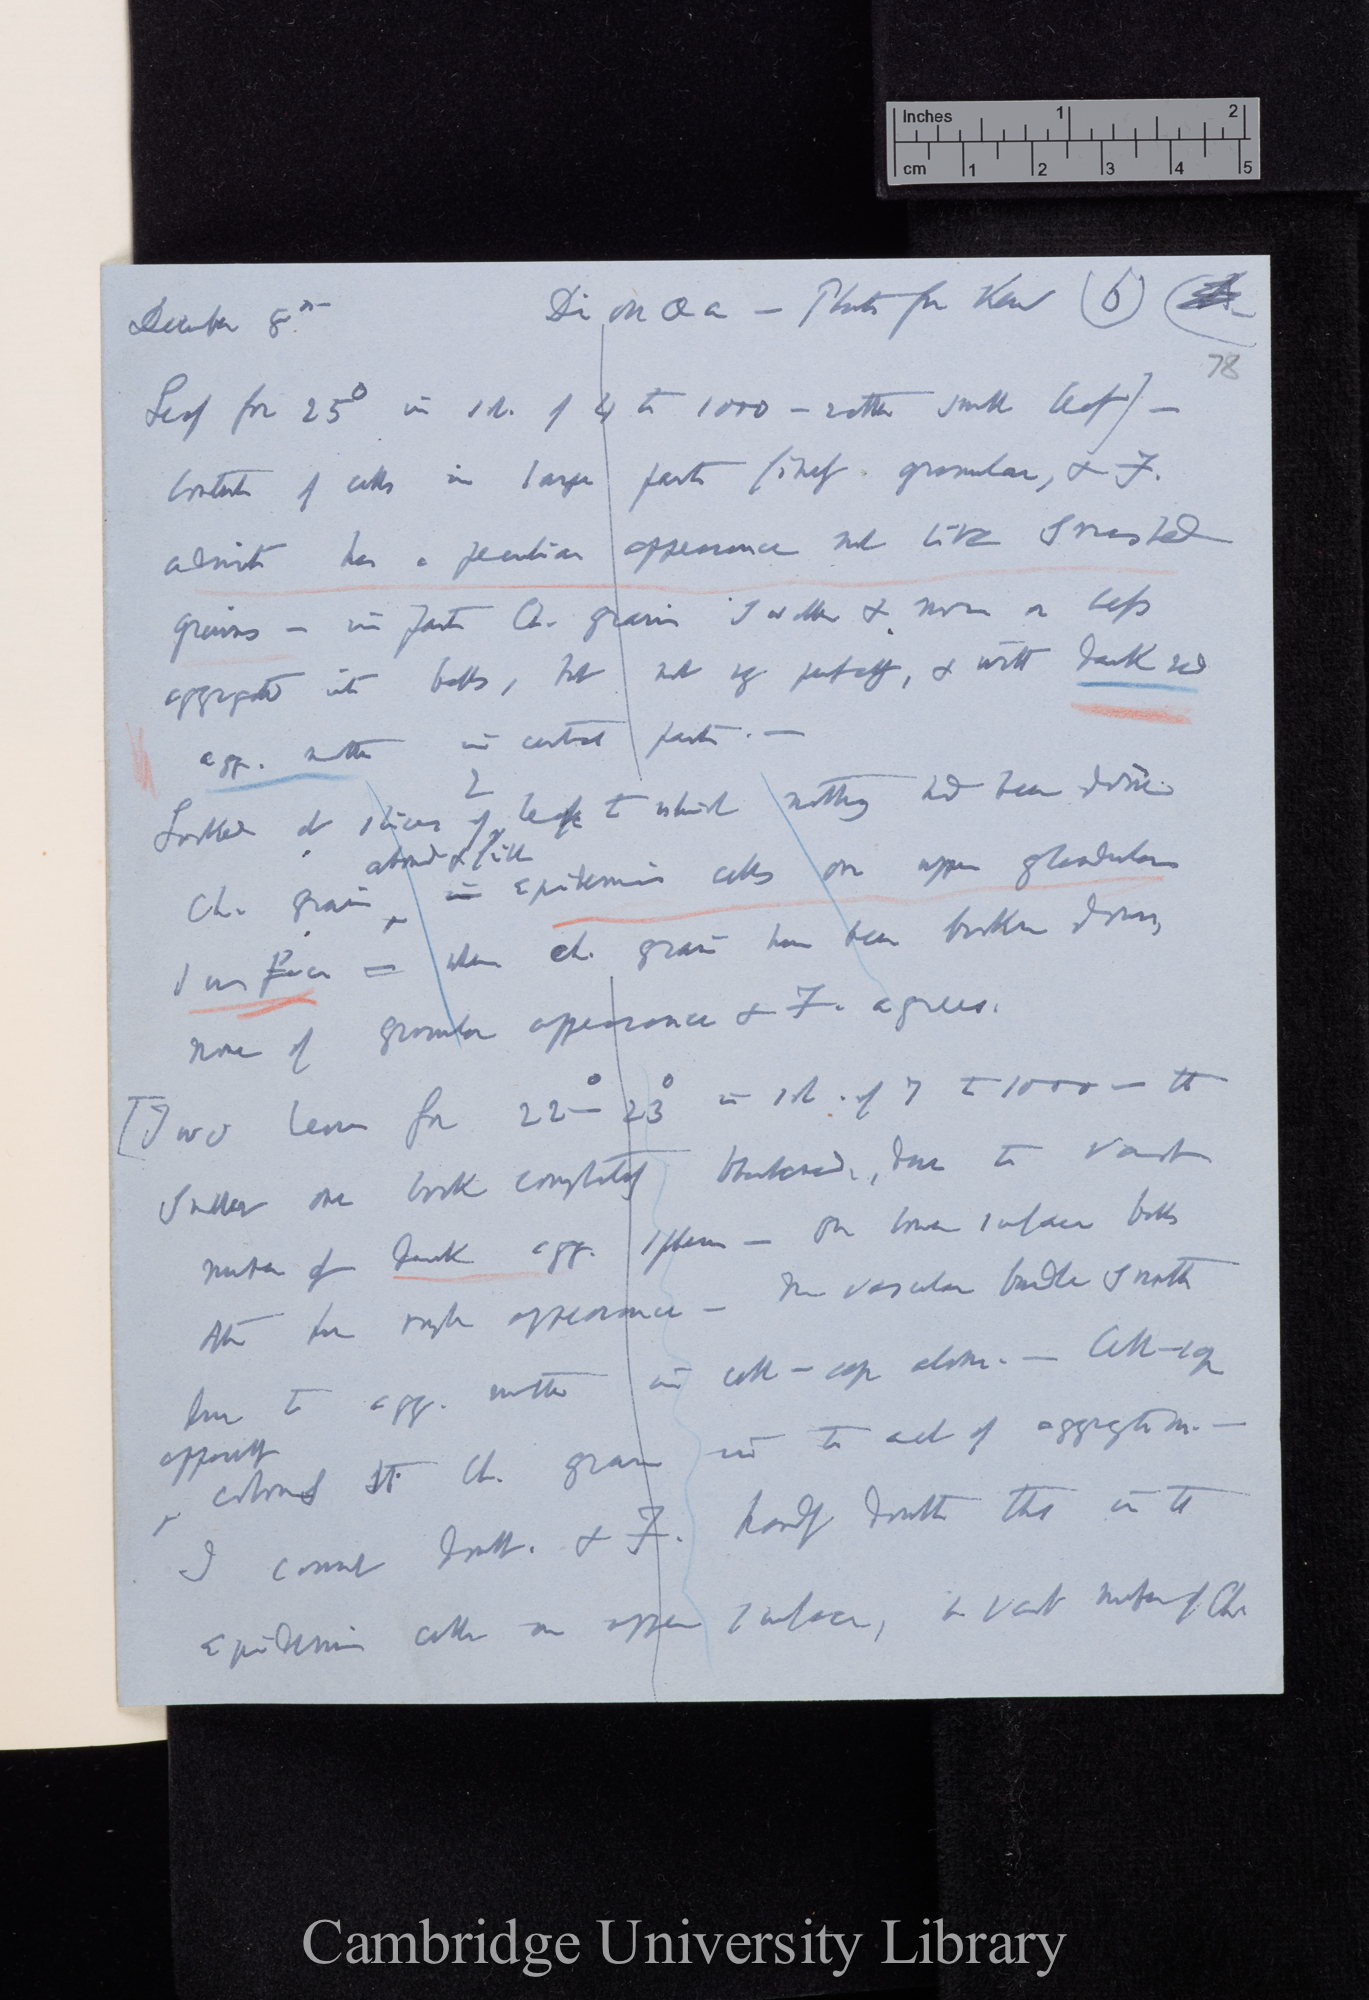 Inches 1 2
cm 1 2 3 4 5
December 8th Dionaea — Plants from Kew (6)
78
Leaf for 25° in sol. of 4 to 1000 — rather small leaf] —
contents of cells in large parts granular, & F.
admits has a peculiar appearance not like smashed
grains — in parts Ch. grains swollen & more or less
aggregated into balls, but not perfectly, & with dark red
agg. matter in central parts. —
Looked at slices of 2 leaf to which nothing had been done
abound & like
Ch. grain in epidermis cells on upper glandular
surface — when ch. grain have been broken down,
none of granular appearance & F. agrees.
[Two leaves for 22°–23° in sol. of 7 to 1000 — the
smaller one look completely blackened, due to vast
number of dark agg. spheres — On lower surface both
have rough appearance — The vascular bundle
due to agg. matter in cell-sap alone. — Cell-sap
apparently
colours the Ch. grain in the act of aggregation. —
I cannot doubt. & F. hardly doubts this in the
epidermis cells on upper surface, in vast number of Ch.
Cambridge University Library